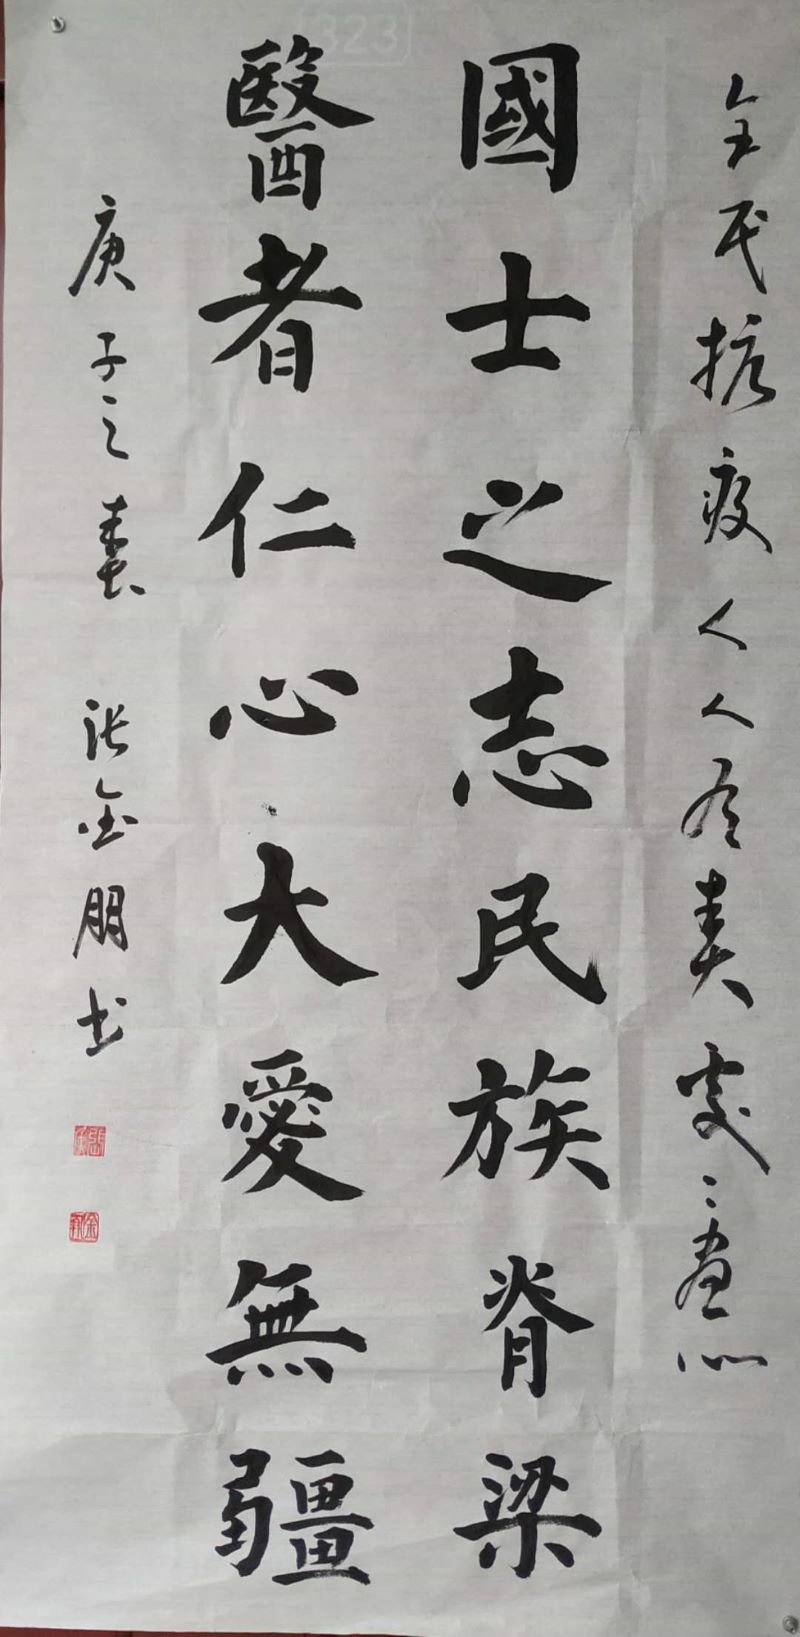 全民抗疫人人有责处处尽心
國士之志民族脊梁
醫者仁心大愛無疆
庚子之春 张金朋书
323